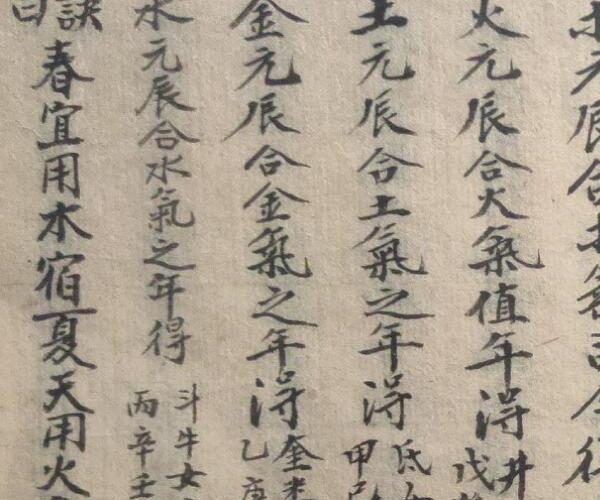 火元辰合火氣值年得井戊
土元辰合土氣之年得氐甲
金元辰合金氣之年得奎婁乙庚
水元辰合水氣之年得斗牛女丙辛壬
訣曰春宜用木宿夏天用火